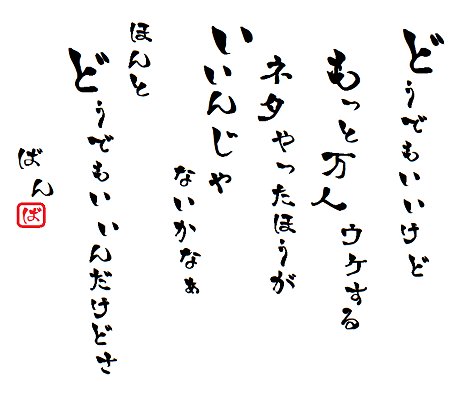 どうでもいいけど
もっと万人
ウケする
ネタやったほうが
いいんじゃ
ないかなぁ
ほんと
どうでもいいんだけどさ
ばん
ば